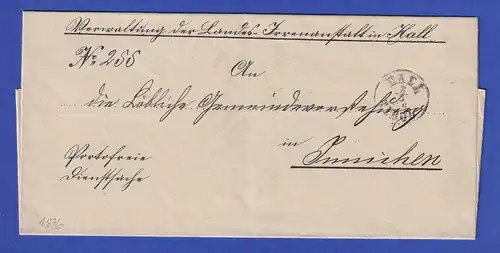 Verwaltung der Landes-Irrenanstalt in Hall
No 255
An
die Löbliche Gemeindevorstehung
in
Innichen
Portofreie
Dienstsache
HALL
TIROL
1876